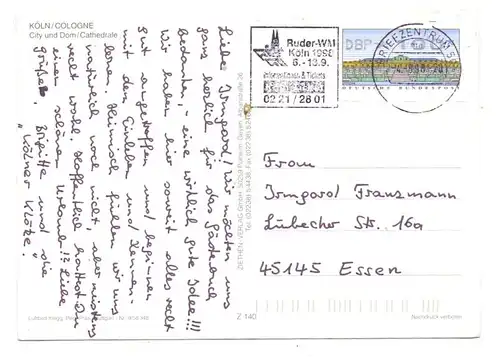 KÖLN / COLOGNE
City und Dom / Cathedrale
Liebe Irmgard! Wir möchten uns
ganz herzlich für das Gästebuch
bedanken, - eine wirklich gute Idee!!!
Wir haben hier soweit alles recht
gut angetroffen und beginnen
mit dem Einleben und Kennen-
lernen. Heimisch fühlen wir uns
natürlich noch nicht, aber meistens
recht wohl. Hoffentlich hattest Du
einen schönen Urlaub!? Liebe
Grüße, Brigitte und die
"Kölner Klötze".
ZIETHEN-VERLAG GmbH
Z 140
Nachdruck verboten
Ruder-WM
Köln 1998
6. - 13.9.
Informationen & Tickets
02 21 / 28 01
BRIEFZENTRUM 5
DBP
DEUTSCHE BUNDESPOST
Frau
Irmgard Franzmann
Lübecker Str. 16a
45145 Essen